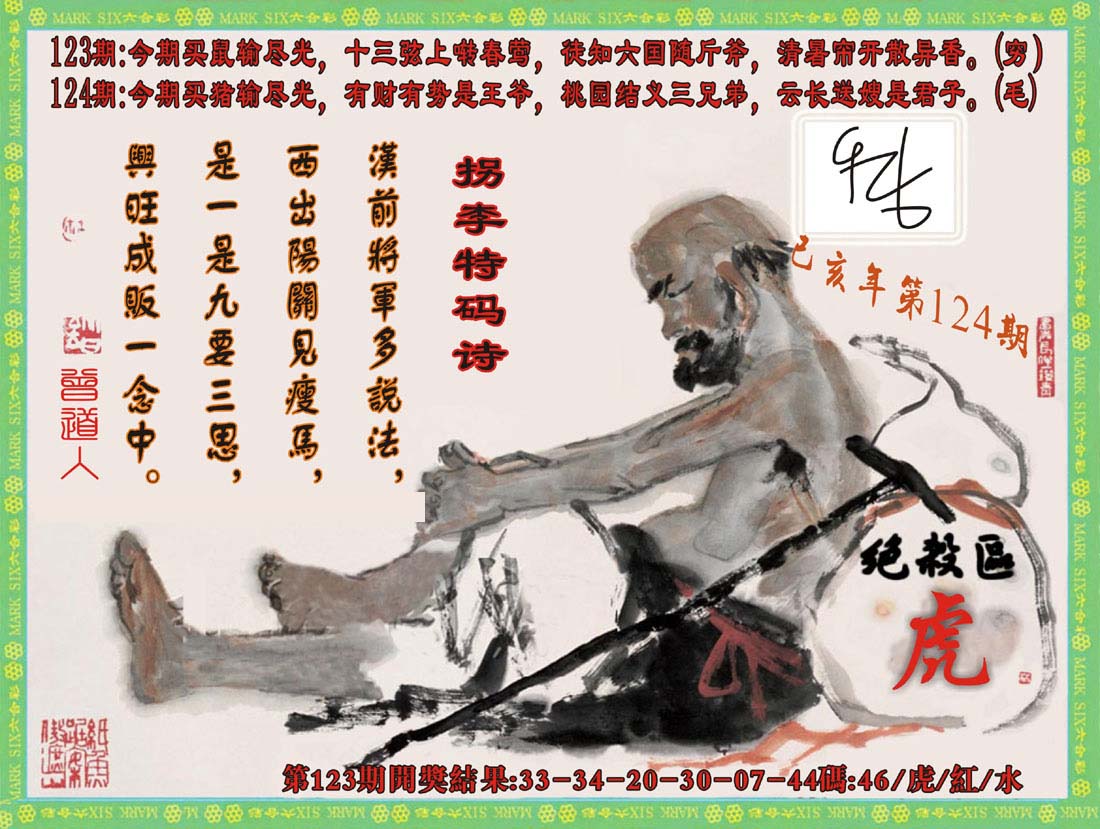 MARK SIX六合彩
123期:今期买鼠输尽光，十三弦上啭春莺，徒知六国随斤斧，清暑帘开散异香。(穷)
124期:今期买猪输尽光，有财有势是王爷，桃园结义三兄弟，云长送嫂是君子。(毛)
己亥年第124期
拐李特码诗
漢前將軍多説法，
西出陽關見瘦馬，
是一是九要三思，
興旺成販一念中。
曾道人
绝殺區
虎
第123期開獎結果:33-34-20-30-07-44碼:46/虎/紅/水